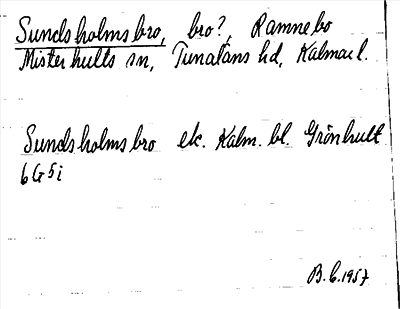 Sundsholmsbro, bro?, Ramnebo
Misterhults sn, Tunaläns hd, Kalmar l.
Sundsholmsbro ek. Kalm. bl. Grönhult
6G5i
B.C. 1957